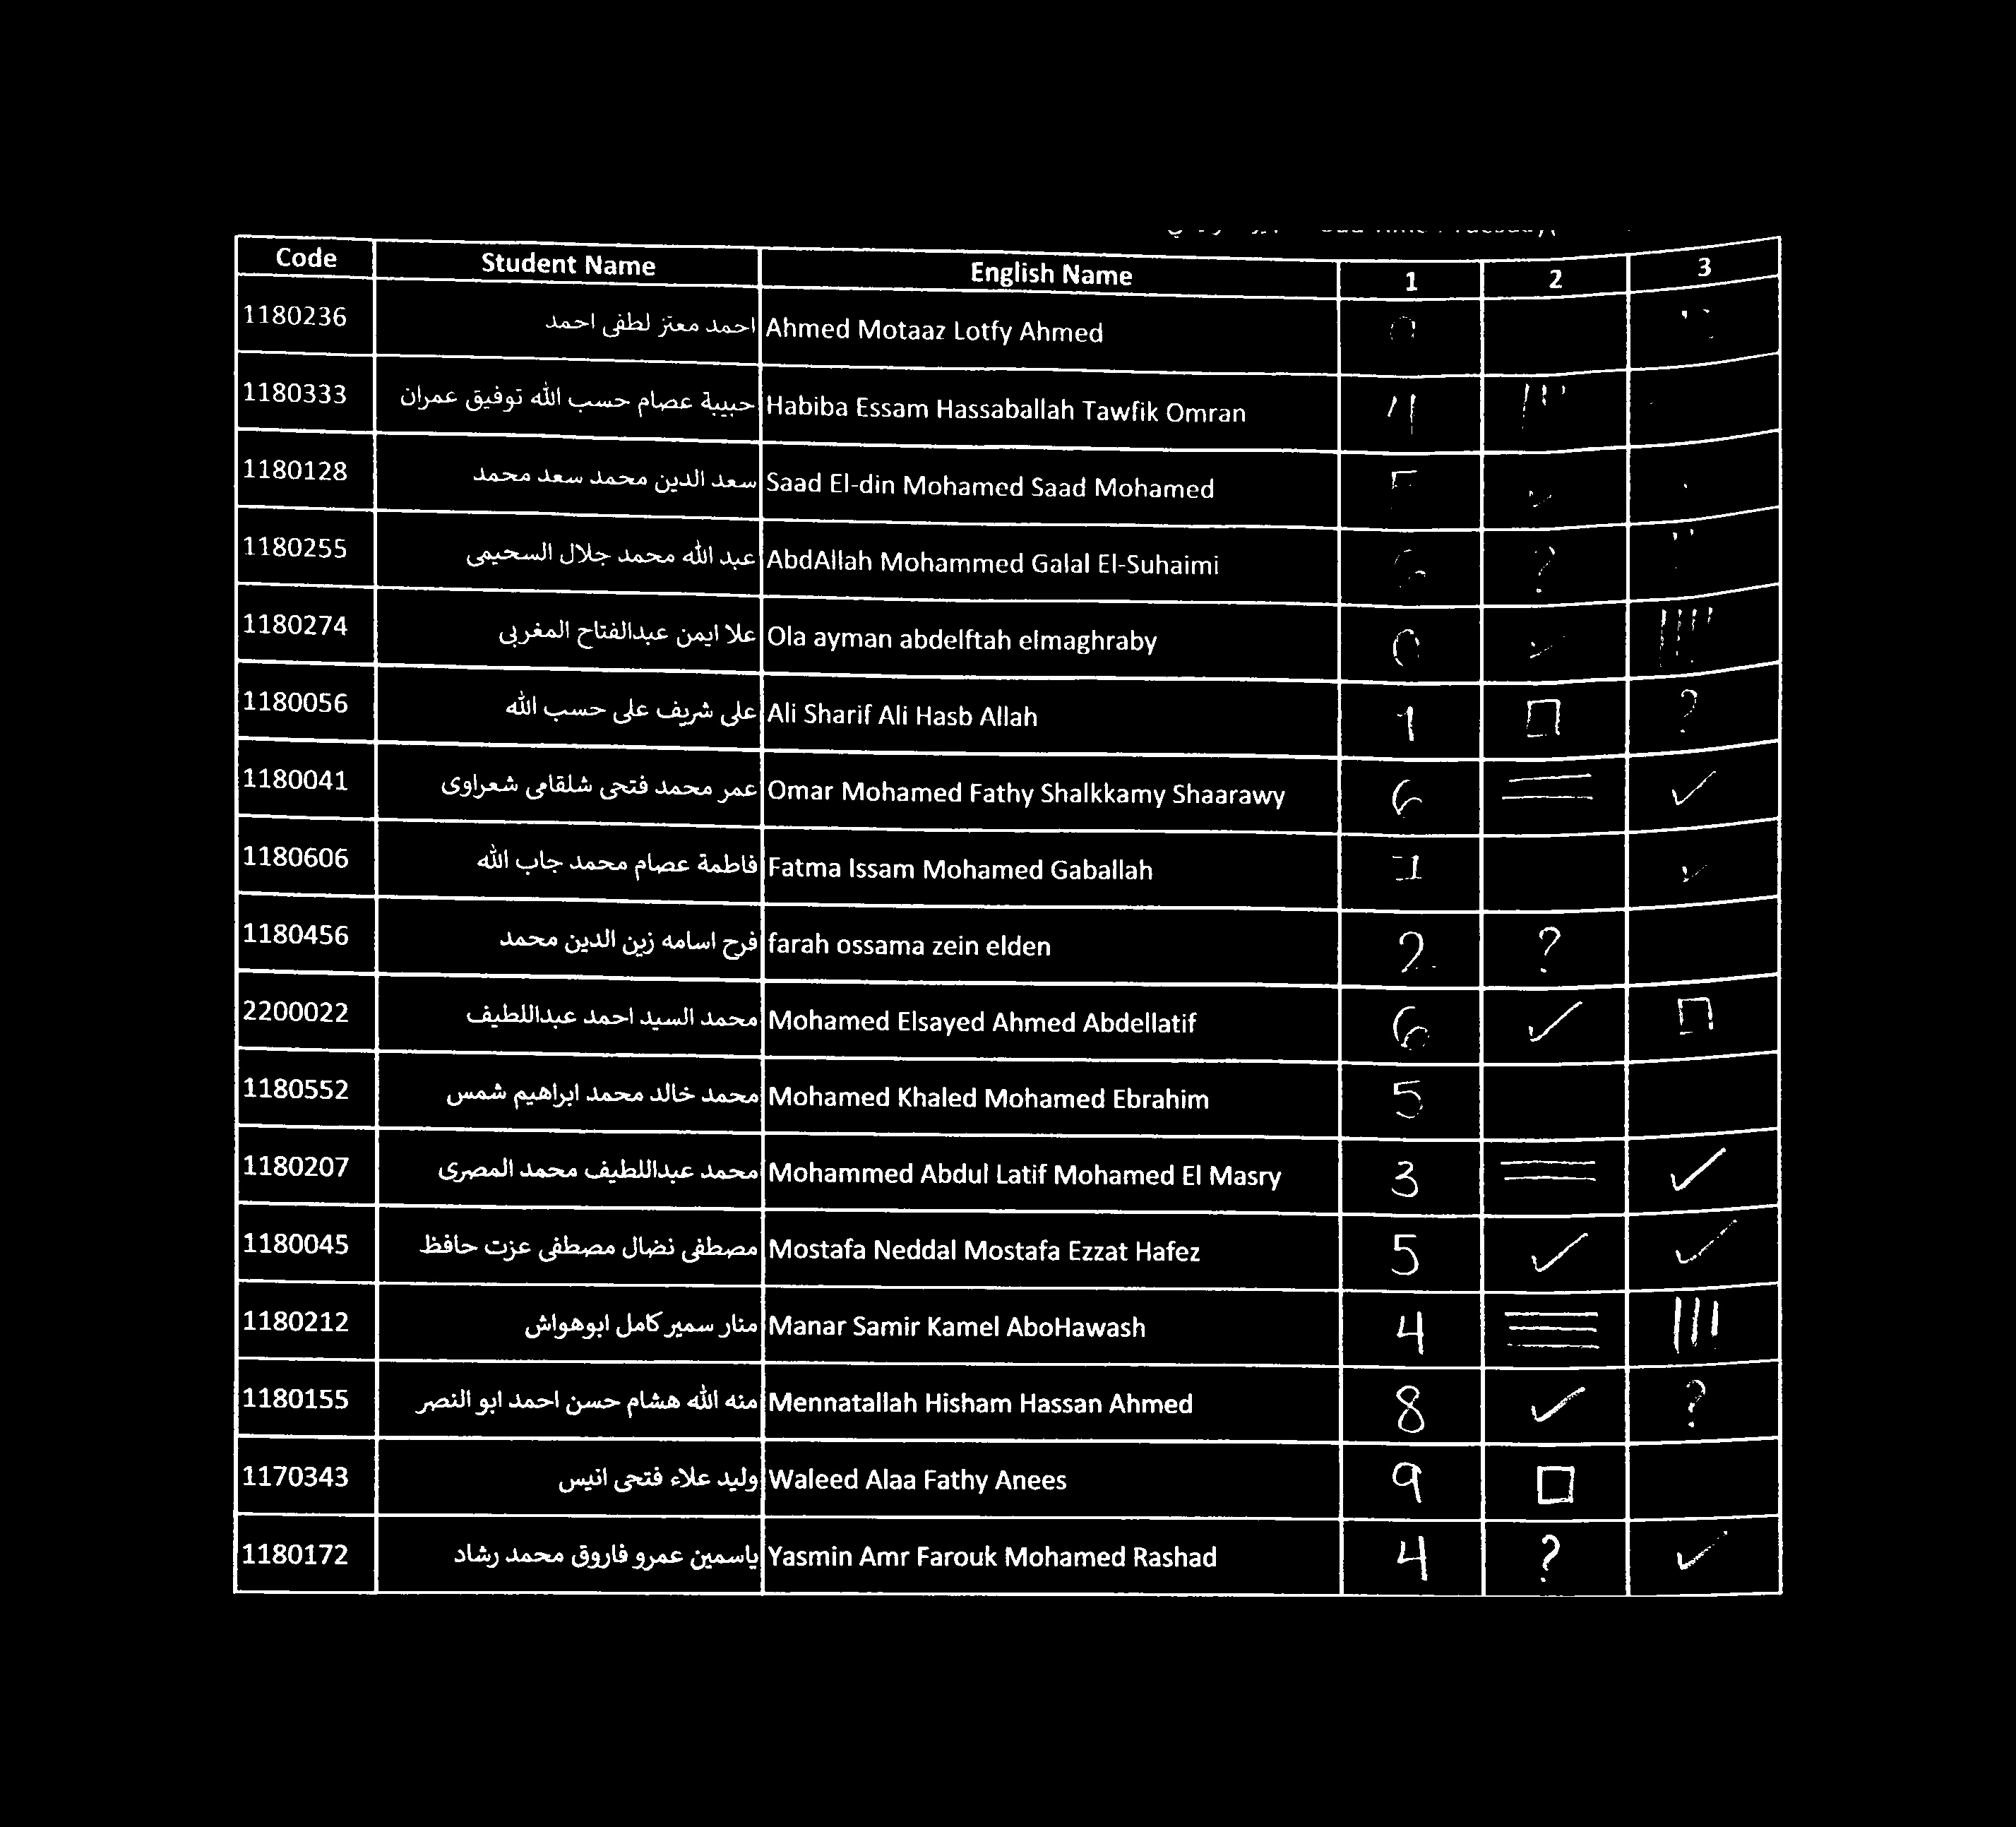 Code Student Name English Name 1 2 3
1180236 احمد معتز لطفى احمد Ahmed Motaaz Lotfy Ahmed
1180333 حبيبة عصام حسب الله توفيق عمران Habiba Essam Hassaballah Tawfik Omran
1180128 سعد الدين محمد سعد محمد Saad El-din Mohamed Saad Mohamed 5 ✓
1180255 عبد الله محمد جلال السحيمى AbdAllah Mohammed Galal El-Suhaimi 6 ?
1180274 علا ايمن عبدالفتاح المغربى Ola ayman abdelftah elmaghraby 0 ✓
1180056 على شريف على حسب الله Ali Sharif Ali Hasb Allah 1 □ ?
1180041 عمر محمد فتحى شلقامى شعراوى Omar Mohamed Fathy Shalkkamy Shaarawy 6 = ✓
1180606 فاطمة عصام محمد جاب الله Fatma Issam Mohamed Gaballah ✓
1180456 فرح اسامه زين الدين محمد farah ossama zein elden 2 ?
2200022 محمد السيد احمد عبداللطيف Mohamed Elsayed Ahmed Abdellatif 6 ✓ □
1180552 محمد خالد محمد ابراهيم شمس Mohamed Khaled Mohamed Ebrahim 5
1180207 محمد عبداللطيف محمد المصرى Mohammed Abdul Latif Mohamed El Masry 3 = ✓
1180045 مصطفى نضال مصطفى عزت حافظ Mostafa Neddal Mostafa Ezzat Hafez 5 ✓ ✓
1180212 منار سمير كامل ابوهواش Manar Samir Kamel AboHawash 4 ≡ |||
1180155 منه الله هشام حسن احمد ابو النصر Mennatallah Hisham Hassan Ahmed 8 ✓ ?
1170343 وليد علاء فتحى انيس Waleed Alaa Fathy Anees 9 □
1180172 ياسمين عمرو فاروق محمد رشاد Yasmin Amr Farouk Mohamed Rashad 4 ? ✓